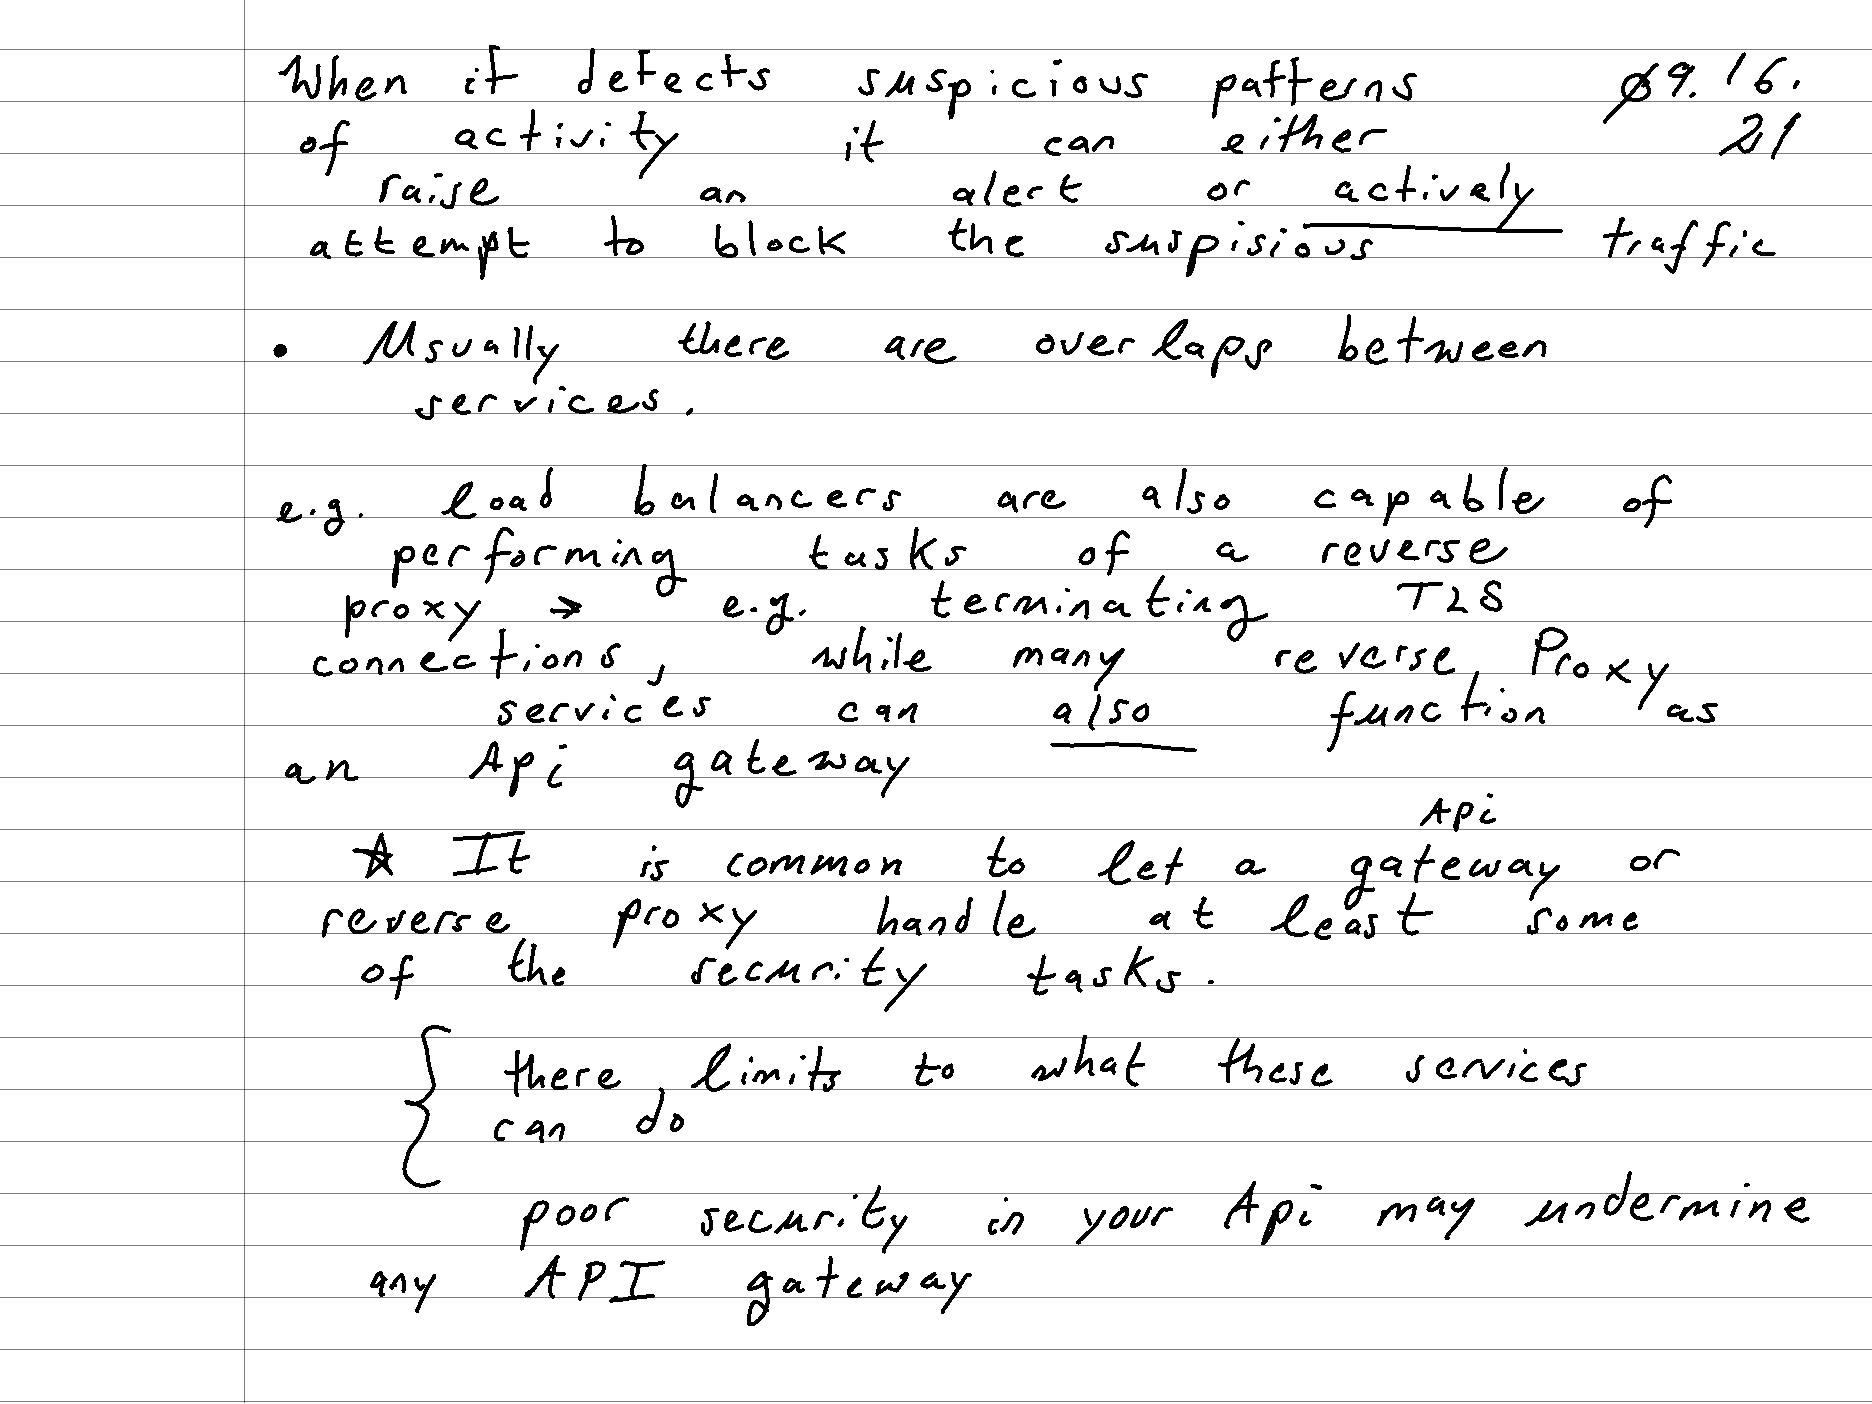 When it detects suspicious patterns 09.16.
of activity it can either 21
raise an alert or actively
attempt to block the suspisious traffic
• Usually there are overlaps between
services.
e.g. load balancers are also capable of
performing tasks of a reverse
proxy → e.g. terminating TLS
connections, while many reverse Proxy
services can also function as
an Api gateway
Api
☆ It is common to let a gateway or
reverse proxy handle at least some
of the security tasks.
there limits to what these services
can do
poor security in your Api may undermine
any API gateway